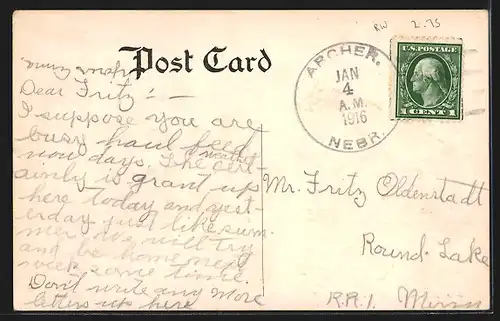 RW 2.75
Post Card
ARCHER.
JAN
4
A.M.
1916
NEBR.
U.S. POSTAGE
1 CENT 1
Dear Fritz :—
I suppose you are
busy haul feed
now days. The weather cert-
ainly is grant up
here today and yest-
erday just like sum
mer. We will try
and be home next
week some time.
Don't write any more
letters up here
Mr. Fritz Oldenstadt
Round Lake
R.R.1. Minn